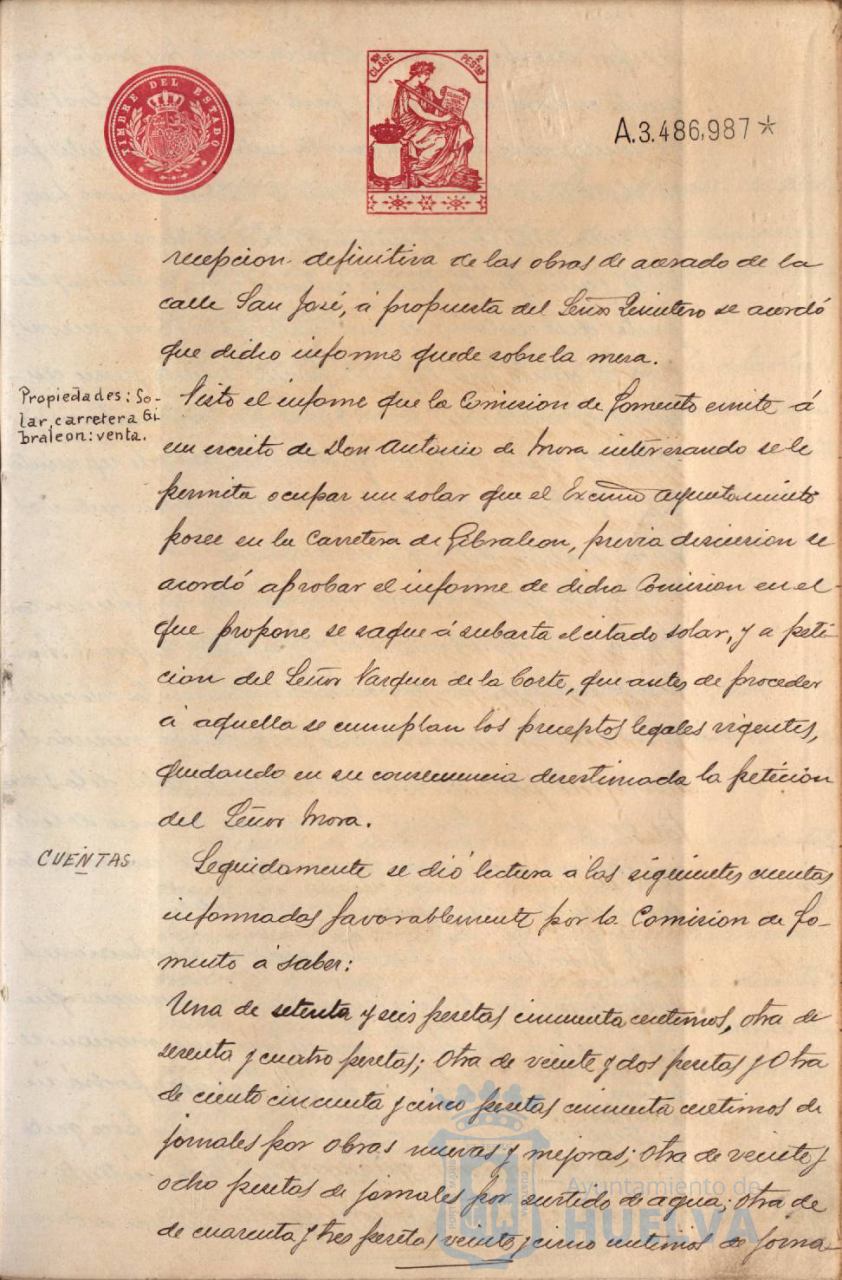 TIMBRE DEL ESTADO
10ª CLASE 2 PESTAS
A.3.486,987*
recepcion definitiva de las obras de acerado de la
calle San José, á propuesta del Señor Quintero se acordó
que dicho informe quede sobre la mesa.
Propiedades: So-
lar, carretera Gi-
braleon: venta.
Visto el informe que la Comision de Fomento emite á
un escrito de Don Antonio de Mora interesando se le
permita ocupar un solar que el Excmo Ayuntamiento
posee en la Carretera de Gibraleon, previa discusion se
acordó aprobar el informe de dicha Comision en el
que propone se saque á subasta el citado solar, y a peti
cion del Señor Vazquez de la Corte, que antes de proceder
á aquella se cumplan los preceptos legales vigentes,
quedando en su consecuencia desestimada la peticion
del Señor Mora.
CUENTAS
Seguidamente se dió lectura a las siguientes cuentas
informadas favorablemente por la Comision de Fo-
mento á saber:
Una de setenta y seis pesetas cincuenta centimos, otra de
sesenta y cuatro pesetas; otra de veinte y dos pesetas y otra
de ciento cincuenta y cinco pesetas cincuenta centimos de
jornales por obras nuevas y mejoras; otra de veinte y
ocho pesetas de jornales por surtido de agua; otra de
de cuarenta y tres pesetas veinte y cinco centimos de jorna-
Ayuntamiento de
HUELVA